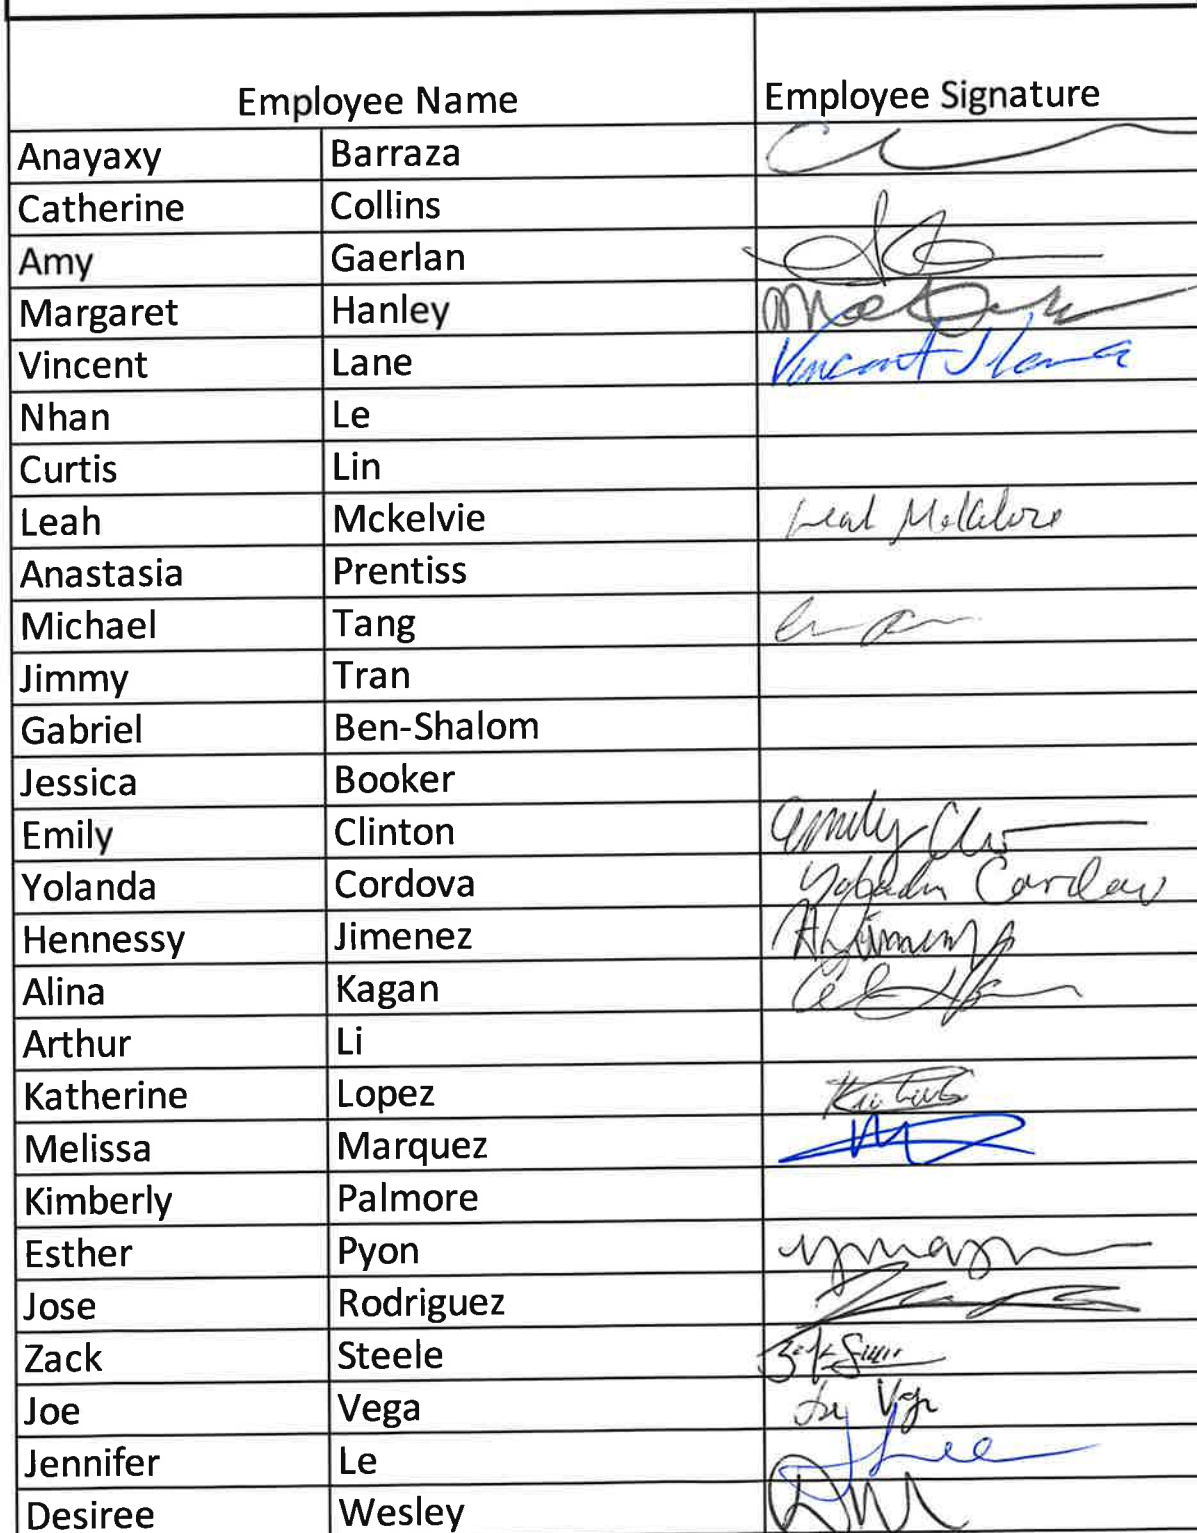 Employee Name Employee Signature
Anayaxy Barraza
Catherine Collins
Amy Gaerlan
Margaret Hanley
Vincent Lane Vincent J Lane
Nhan Le
Curtis Lin
Leah Mckelvie
Anastasia Prentiss
Michael Tang
Jimmy Tran
Gabriel Ben-Shalom
Jessica Booker
Emily Clinton Emily
Yolanda Cordova
Hennessy Jimenez
Alina Kagan
Arthur Li
Katherine Lopez
Melissa Marquez
Kimberly Palmore
Esther Pyon
Jose Rodriguez
Zack Steele
Joe Vega
Jennifer Le
Desiree Wesley